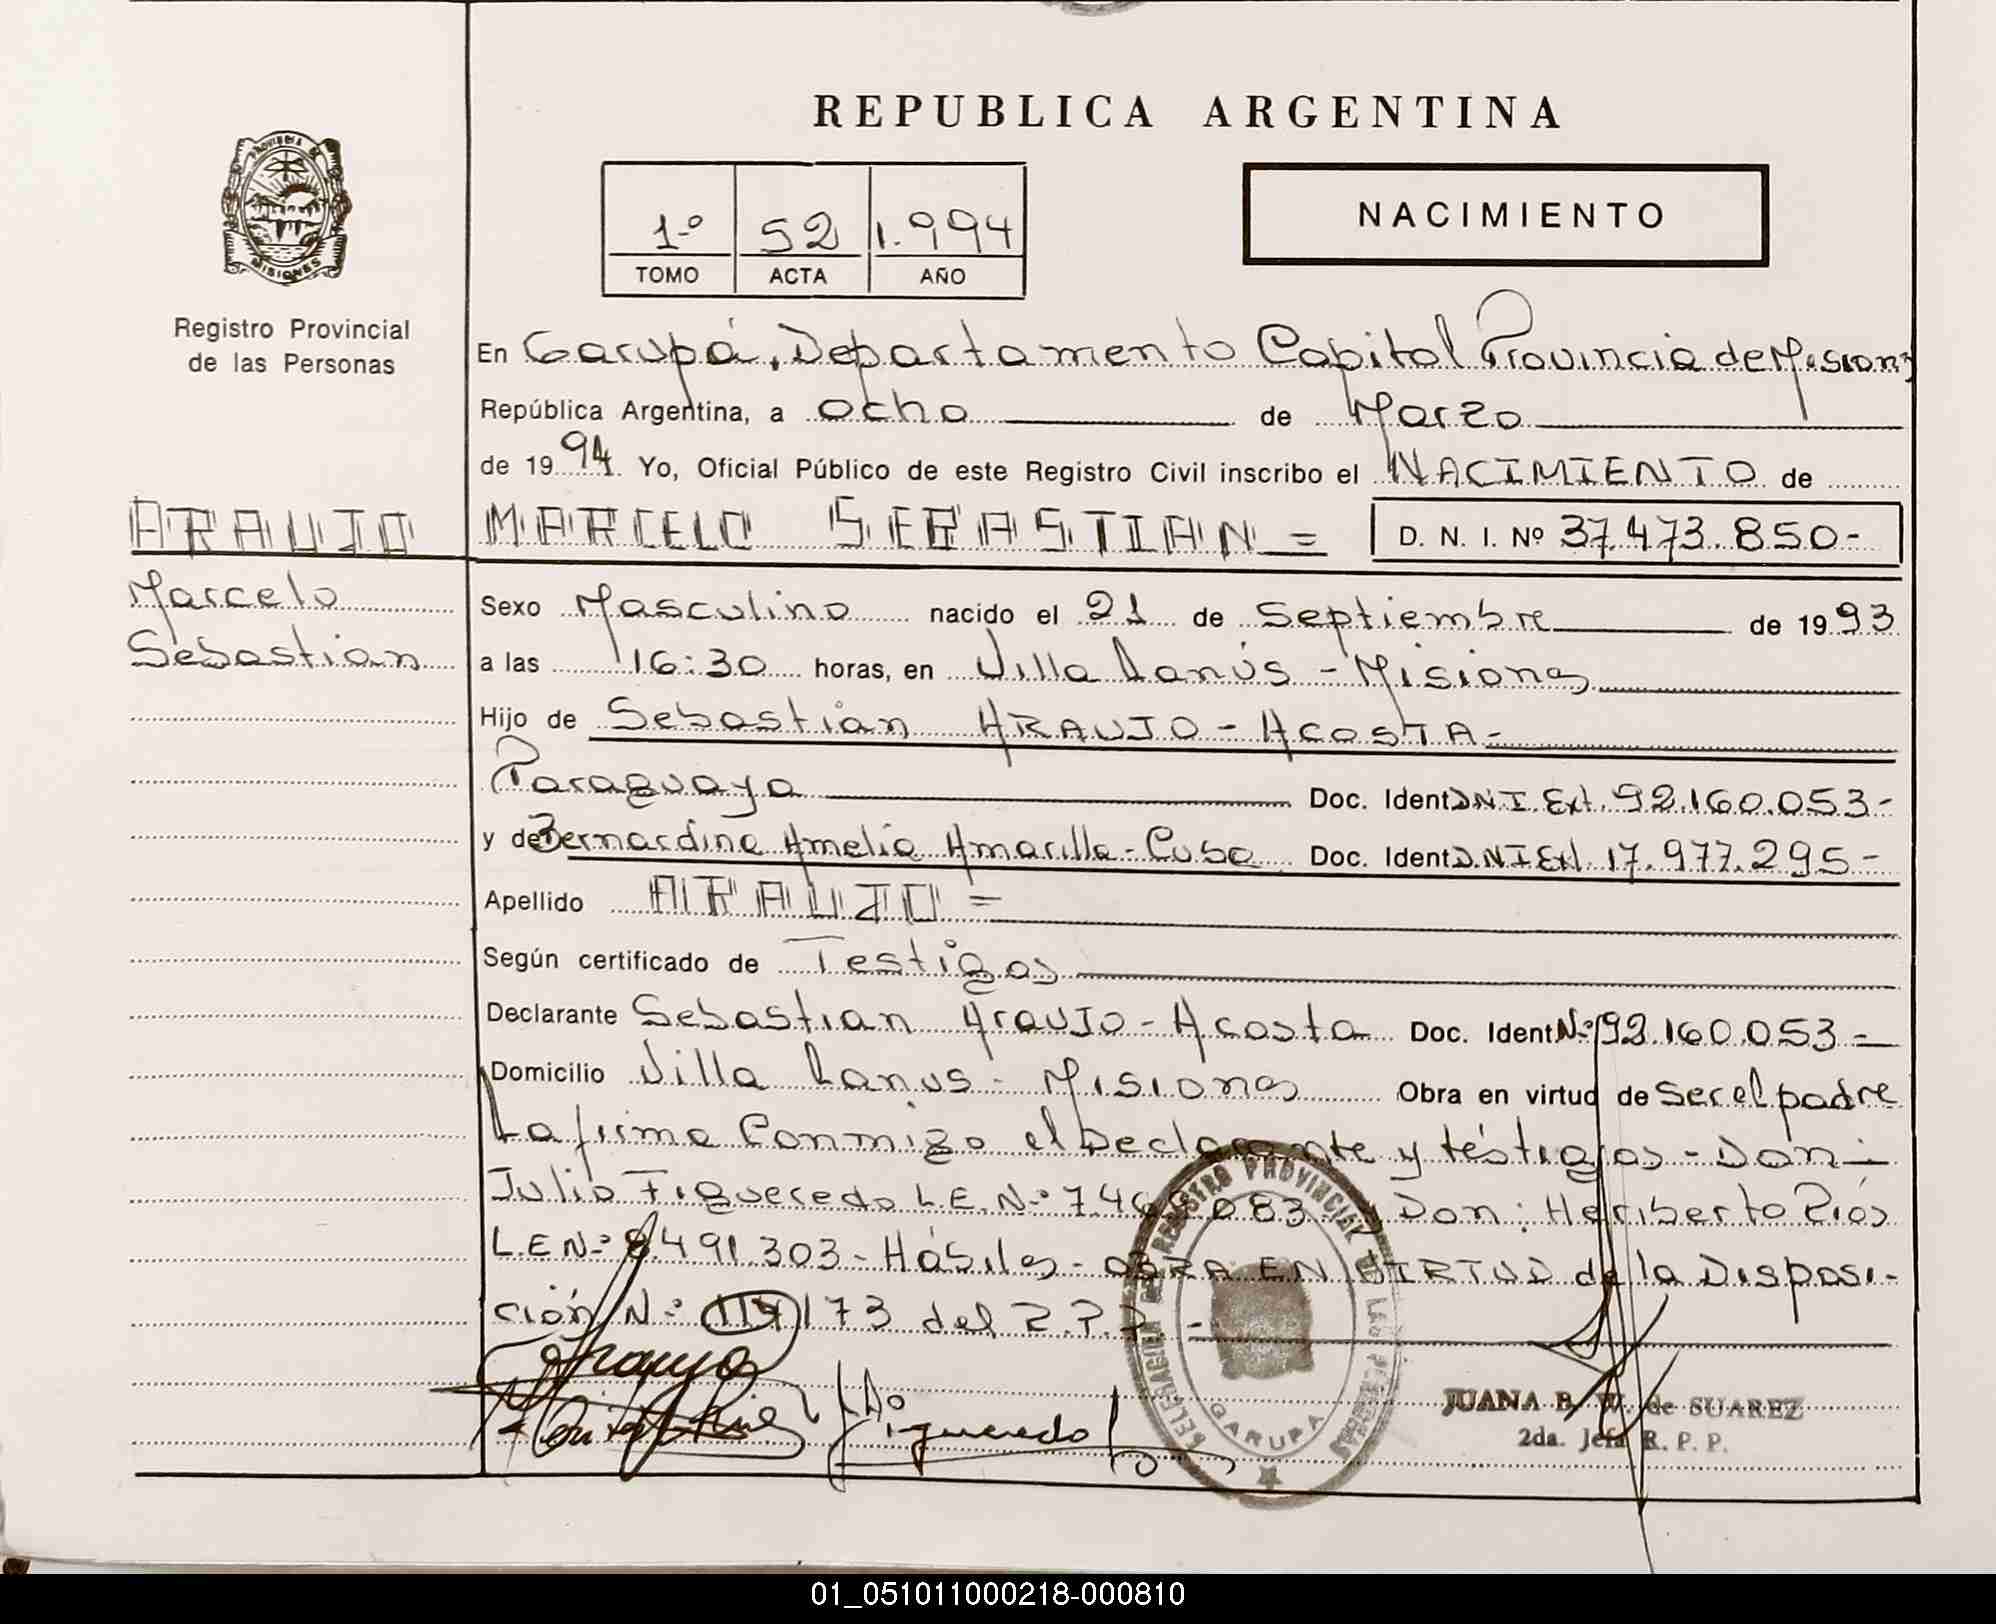 REPUBLICA ARGENTINA
PROVINCIA DE
MISIONES
Registro Provincial
de las Personas
1º 52 1.994
TOMO ACTA AÑO
NACIMIENTO
En Garupá, Departamento Capital Provincia de Misiones
República Argentina, a ocho de Marzo
de 1994. Yo, Oficial Público de este Registro Civil inscribo el NACIMIENTO de
ARAUJO MARCELO SEBASTIAN = D. N. I. Nº 37.473.850-
Marcelo
Sebastian
Sexo Masculino nacido el 21 de Septiembre de 1993
a las 16:30 horas, en Villa Lanús - Misiones
Hijo de Sebastian ARAUJO - ACOSTA -
Paraguaya Doc. Ident D.N.I. Ext. 92.160.053-
y de Bernardina Amelia Amarilla - Cuba Doc. Ident D.N.I. Ext. 17.977.295-
Apellido ARAUJO =
Según certificado de Testigos
Declarante Sebastian Araujo - Acosta Doc. Ident Nº 92.160.053 =
Domicilio Villa Lanus - Misiones Obra en virtud de Ser el padre
La firma Conmigo el Declarante y téstigos - Don:
Julio Figueredo L.E. Nº 7.468.083 y Don: Heriberto Ríos
L.E Nº 8491.303 - Hábiles - OBRA EN VIRTUD de la Disposi-
ción Nº 114/73 del R.P.P -
Araujo
Figueredo
DELEGACION DEL REGISTRO PROVINCIAL DE LAS PERSONAS
GARUPA
JUANA B. W. de SUAREZ
2da. Jefa R. P. P.
01_051011000218-000810